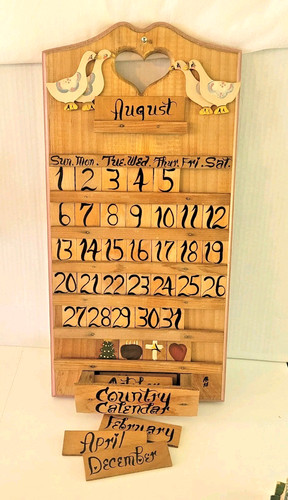 August
Sun. Mon. Tue. Wed. Thur. Fri. Sat.
1 2 3 4 5
6 7 8 9 10 11 12
13 14 15 16 17 18 19
20 21 22 23 24 25 26
27 28 29 30 31
October
Country
Calendar
February
April
December